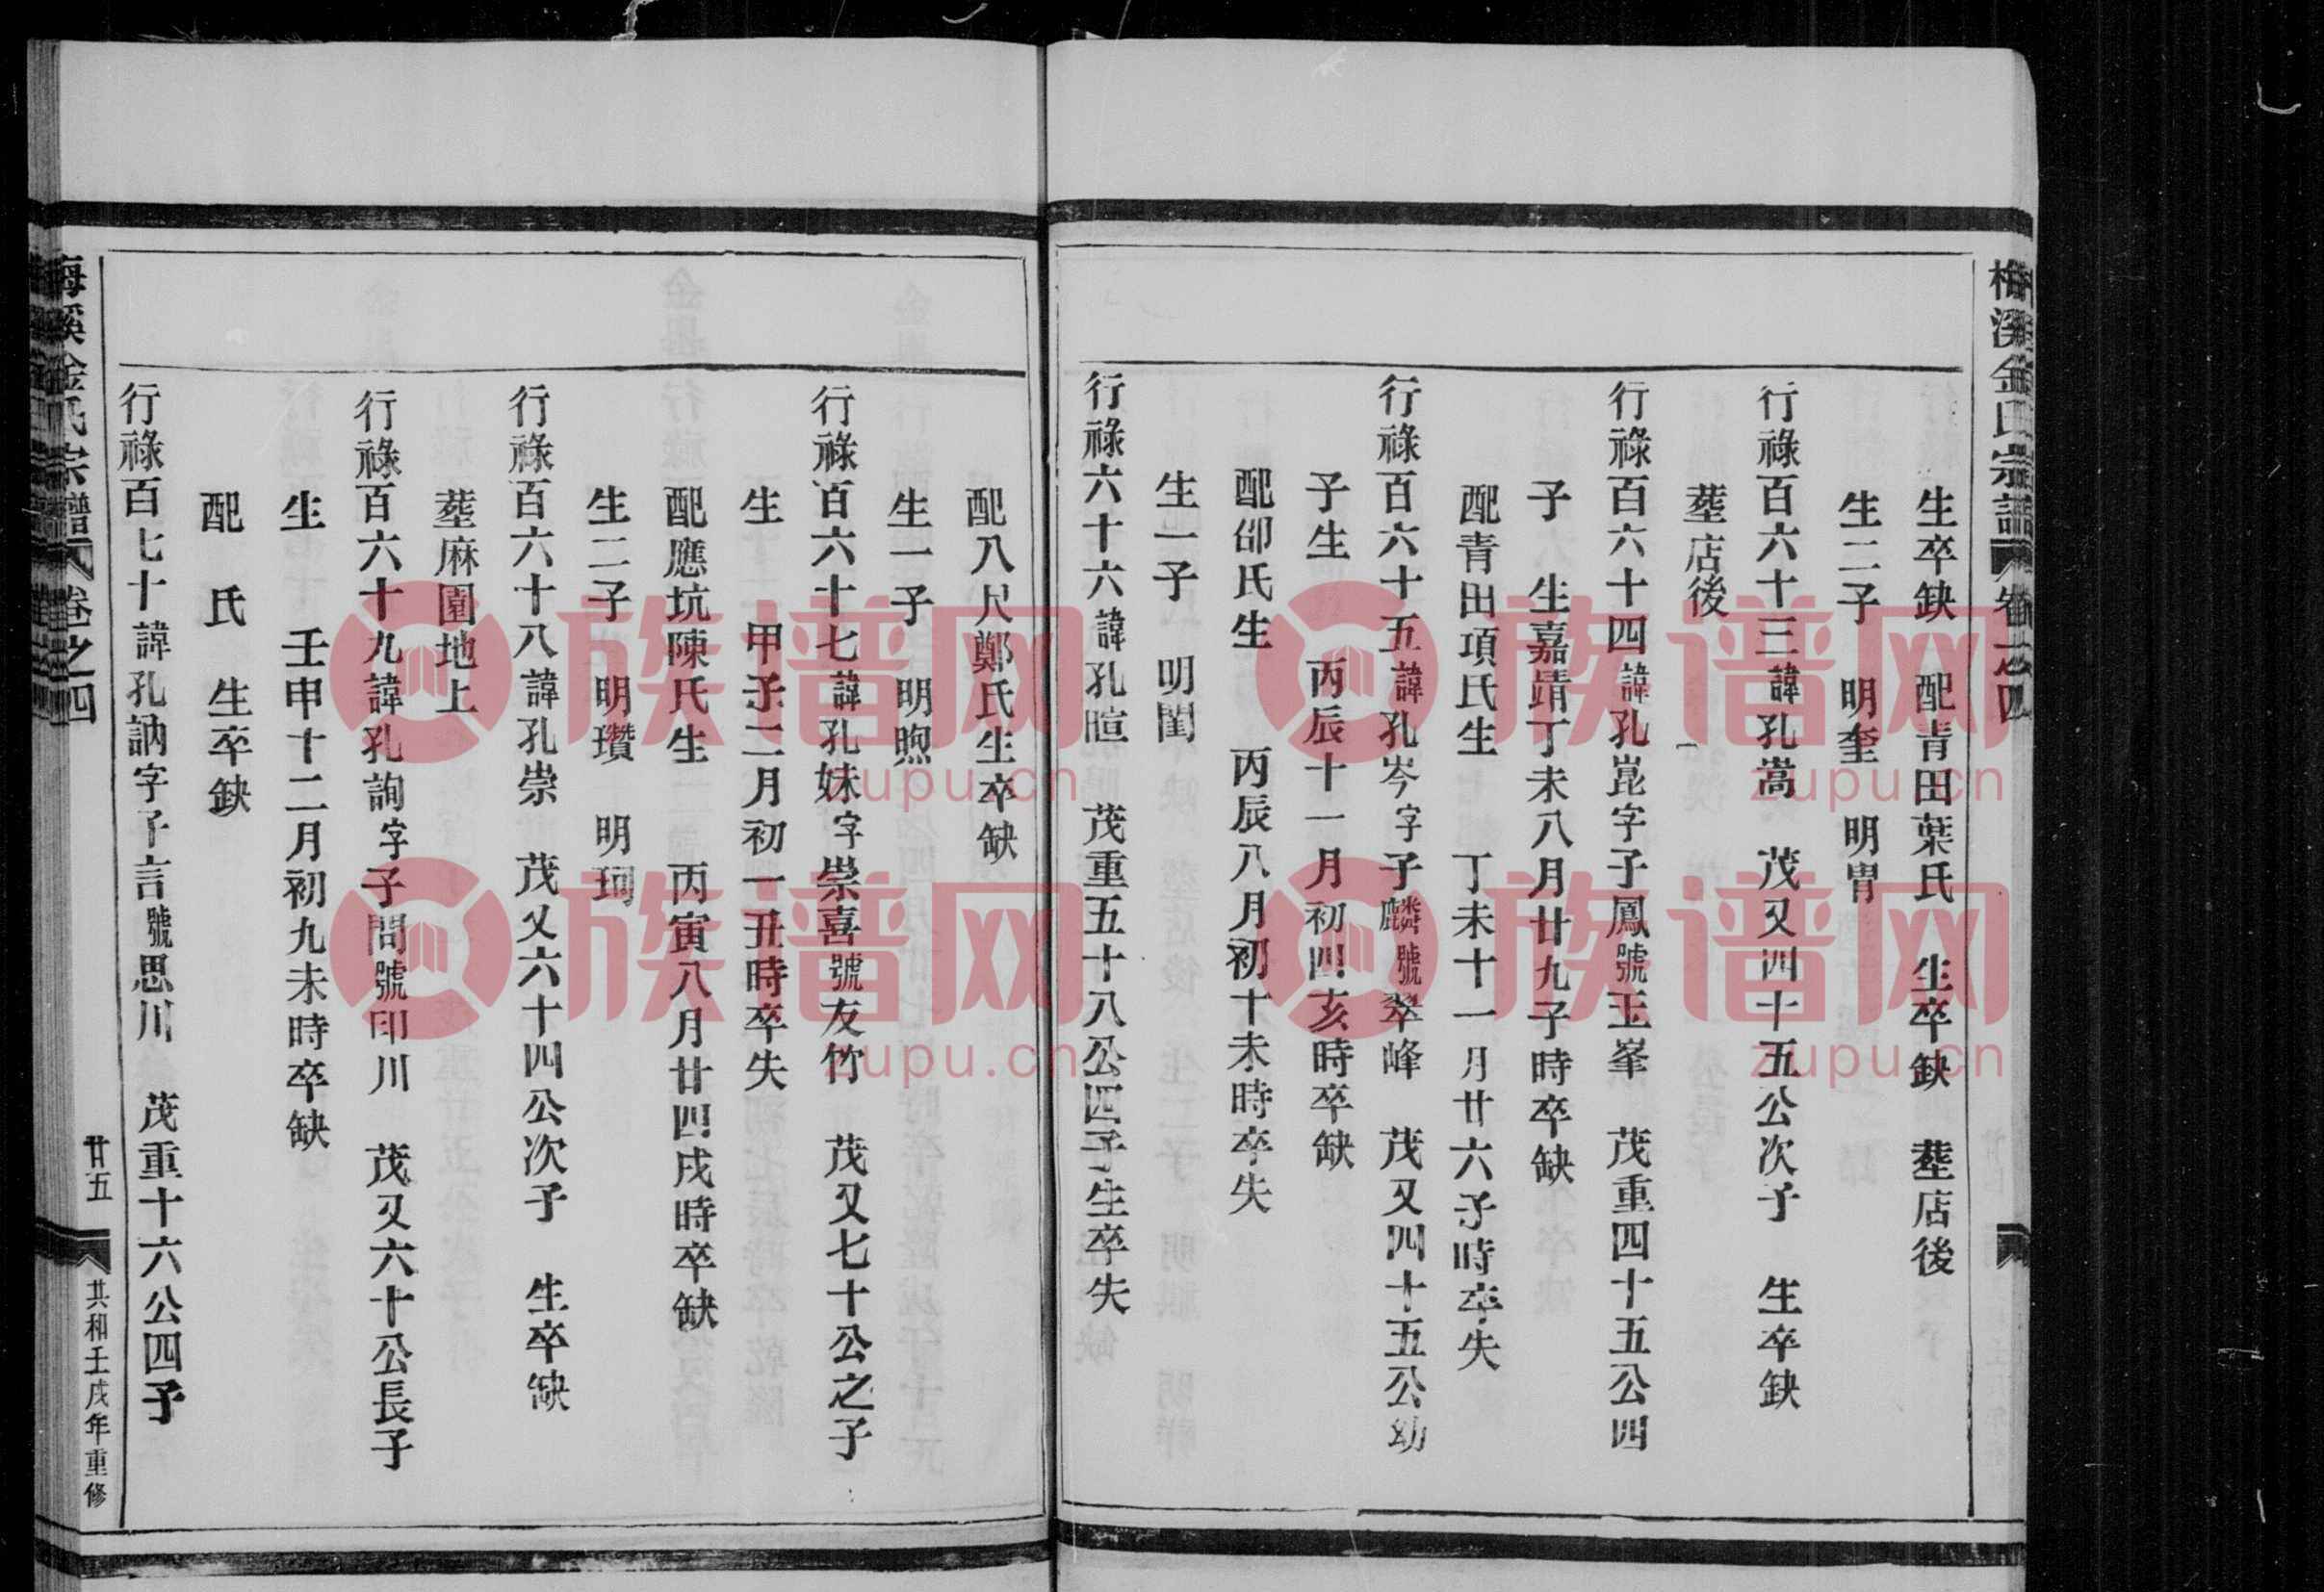 梅溪金氏宗譜 卷之四
生卒缺 配青田葉氏 生卒缺 塟店後
生二子 明奎 明冑
行祿百六十三諱孔嵩 茂又四十五公次子 生卒缺
塟店後
行祿百六十四諱孔崑字子鳳號玉峯 茂重四十五公四
子 生嘉靖丁未八月廿九子時卒缺
配青田項氏生 丁未十一月廿六子時卒失
行祿百六十五諱孔岑字子麟號翠峰 茂又四十五公幼
子生 丙辰十一月初四亥時卒缺
配邵氏生 丙辰八月初十未時卒失
生一子 明閨
行祿六十六諱孔暄 茂重五十八公四子生卒失
配八尺鄭氏生卒缺
生一子 明煦
行祿百六十七諱孔妹字崇喜號友竹 茂又七十公之子
生 甲子二月初一丑時卒失
配應坑陳氏生 丙寅八月廿四戌時卒缺
生二子 明瓚 明珂
行祿百六十八諱孔崇 茂又六十四公次子 生卒缺
塟麻園地上
行祿百六十九諱孔詢字子問號印川 茂又六十公長子
生 壬申十二月初九未時卒缺
配 氏 生卒缺
行祿百七十諱孔訥字子言號思川 茂重十六公四子
梅溪金氏宗譜 卷之四 廿五 共和壬戌年重修
族谱网
zupu.cn
族谱网
zupu.cn
族谱网
zupu.cn
族谱网
zupu.cn